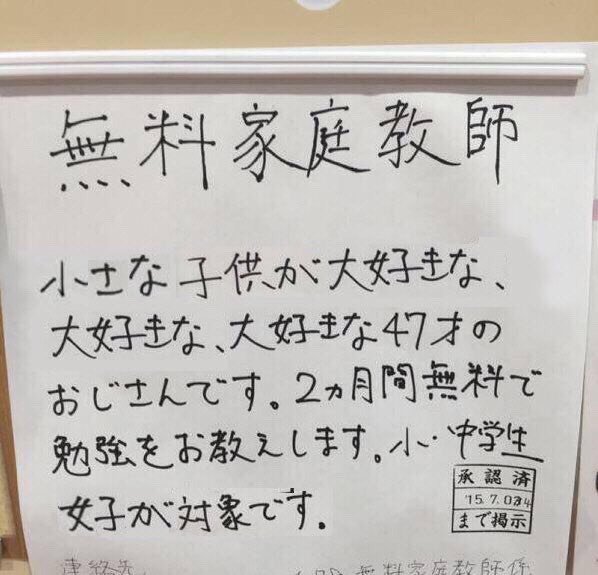 無料家庭教師
小さな子供が大好きな、
大好きな、大好きな47才の
おじさんです。2ヵ月間無料で
勉強をお教えします。小・中学生
女子が対象です。
承認済
'15.7.
まで掲示
連絡先
無料家庭教師係